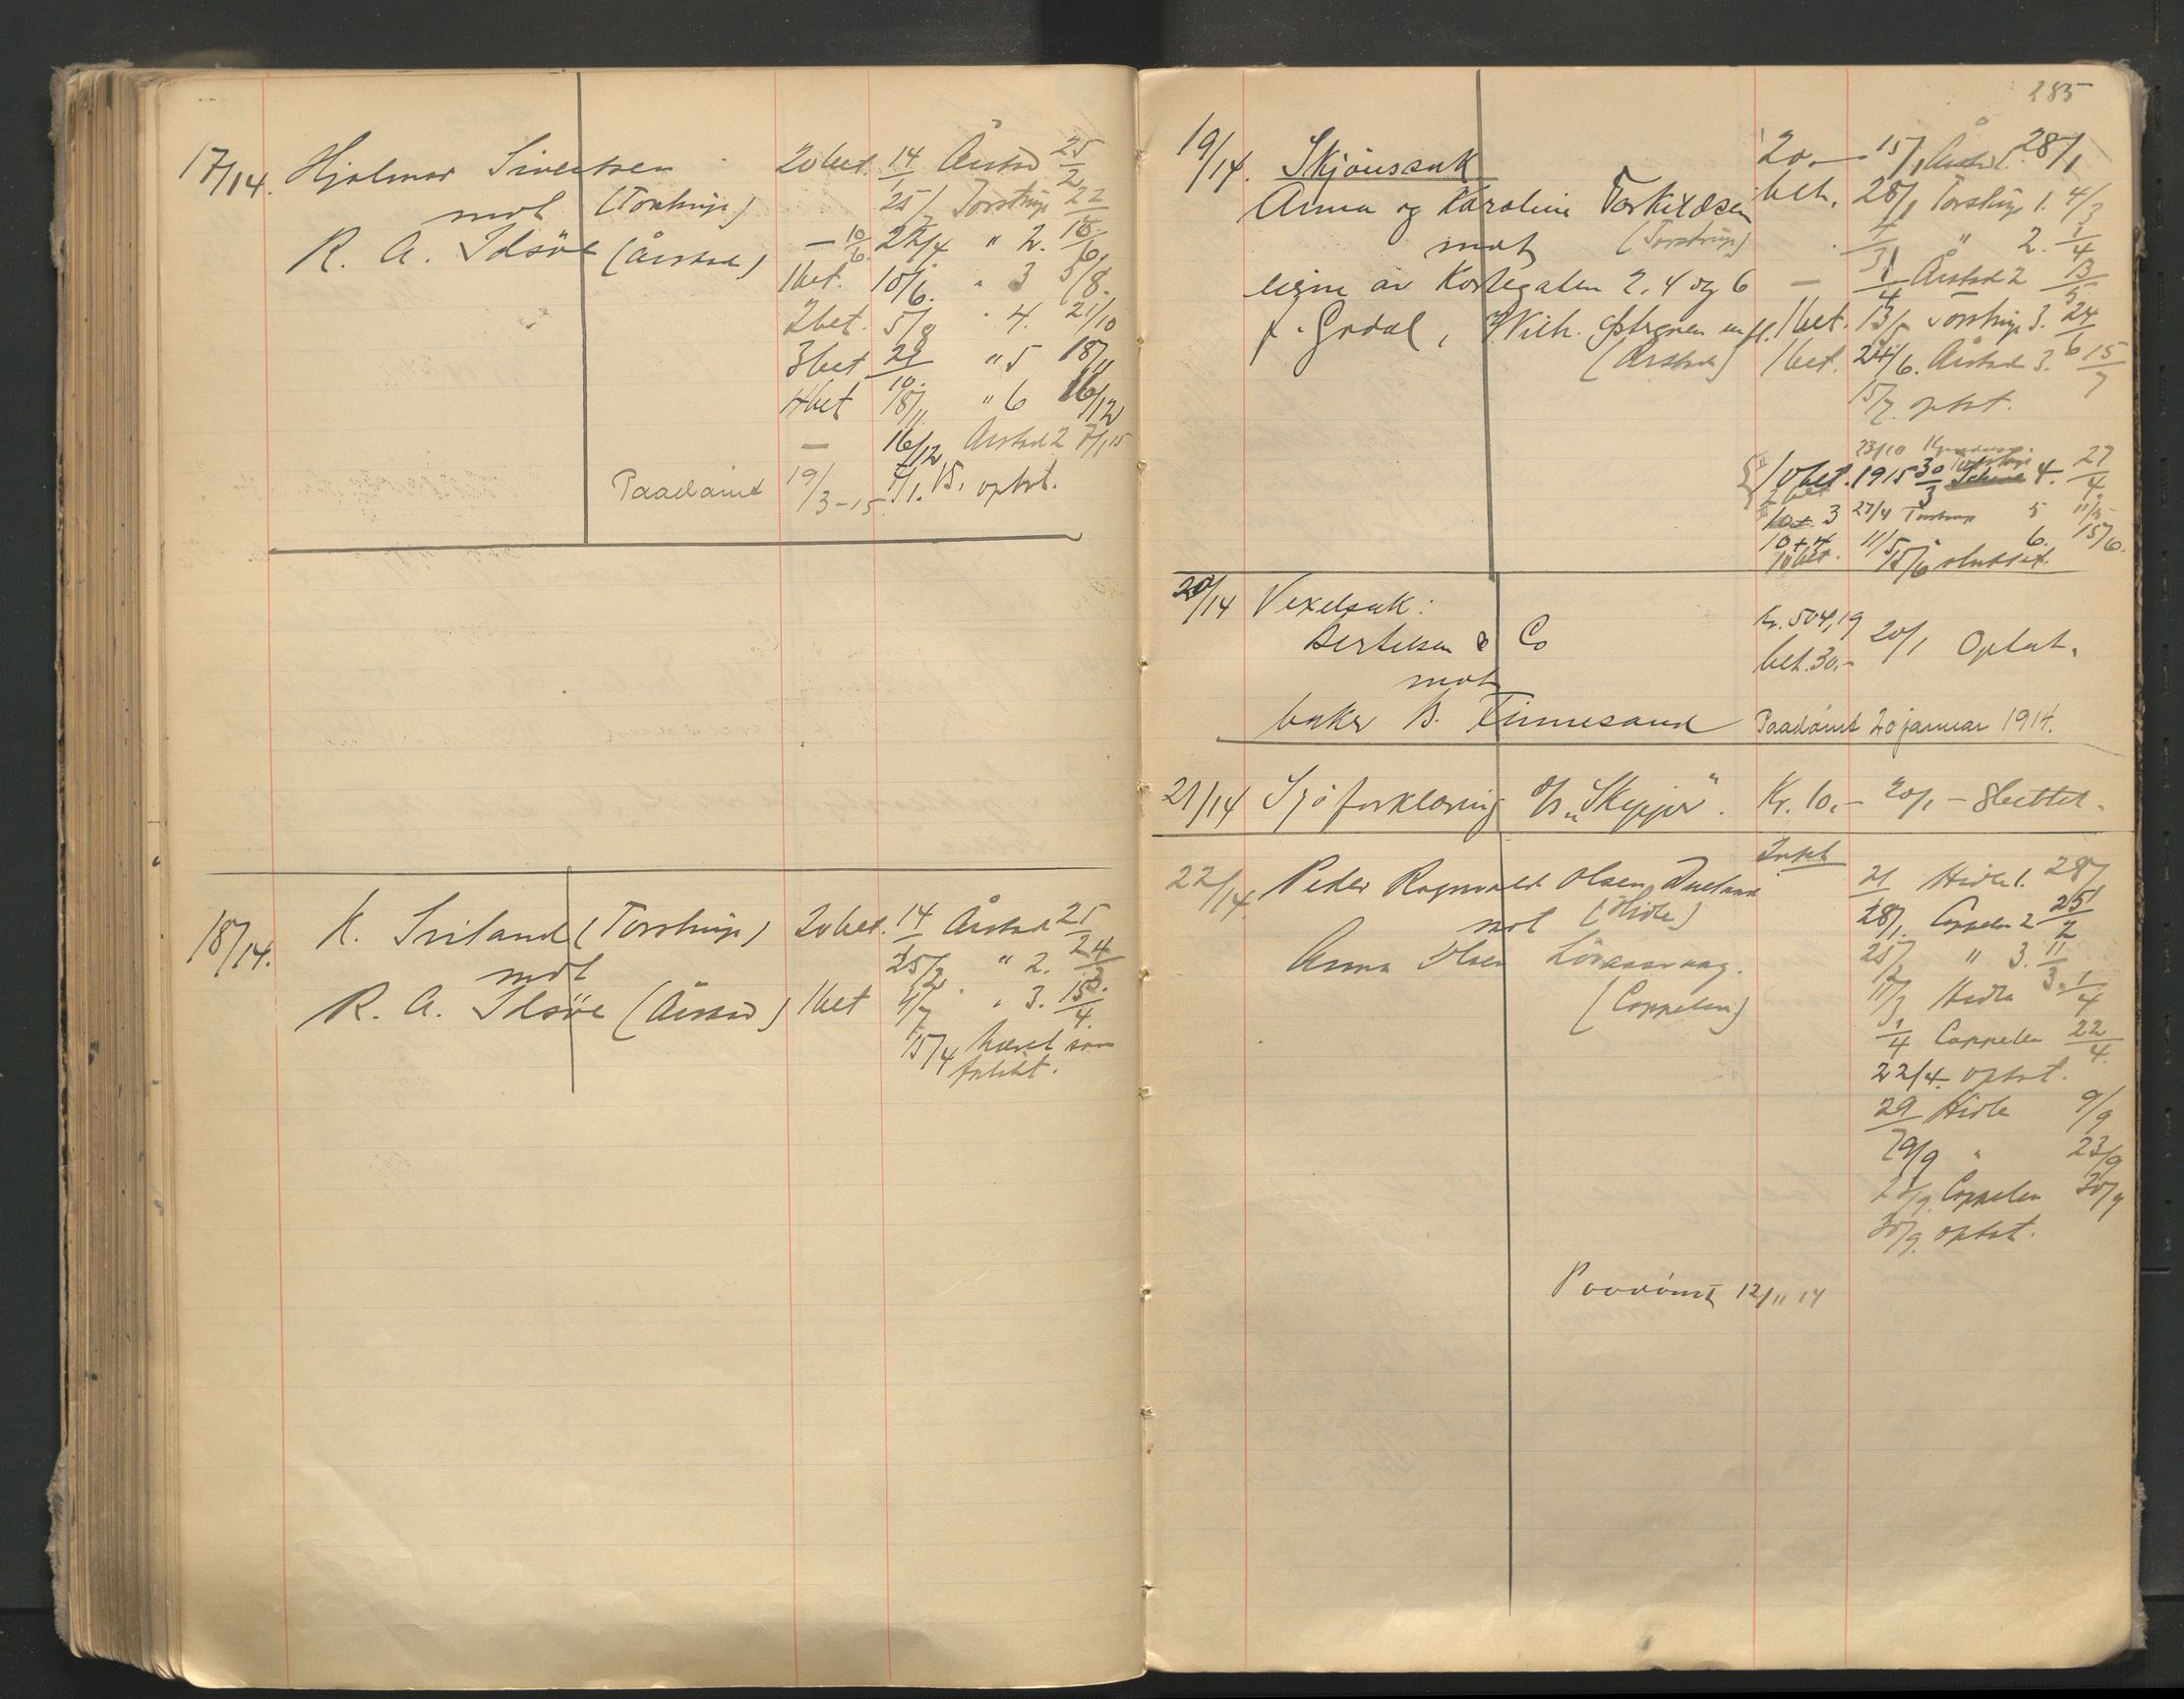 17/14. Hjalmar Sivertsen 20 bet. 14/1 Årstad 25/2
mot (Torstrup) 25/2 Torstrup 22/4
R. A. Idsöe (Årstad) — 10/6 22/4 " 2. 10/6.
1 bet. 10/6. " 3 5/8.
2 bet. 5/8 " 4. 21/10
3 bet 21/10. " 5 18/11
4 bet 18/11. " 6 16/12
— 16/12 Årstad 2 7/1 15
Paadömt 19/3-15 7/1. 15. optat.
18/14. K. Sviland (Torstrup) 20 bet. 14/1 Årstad 25/2
mot 25/2 " 2. 24/3.
R. A. Idsöe (Årstad) 1 bet " 3. 15/4.
15/4 hævet som
forlikt.
285
19/14. Skjönssak 20.— 15/1 Årstad 1. 28/1
Anna og Karoline Torkildsen bet. 28/1 Torstrup 1. 4/3
mot (Torstrup) 4/3 " 2. 1/4
eierne av Kortegaten 2. 4 og 6 — 1/4 Årstad 2 13/5
Wilh. m fl. 1 bet. 13/5 Torstrup 3. 24/6
(Årstad) 1 bet. 24/6. Årstad 3. 15/7
15/7. optat.
23/10
10 bet. 1915 30/3 Torstrup 4. 27/4.
2 bet
3 27/4 Torstrup 5 11/5
10 + 4 11/5 " 6. 15/6.
10 bet. 15/6 sluttet.
20/14 Vexelsak: kr. 504,19
Bertelsen & Co bet. 30.- 20/1 Optat.
mot
baker B. Finnesand Paadömt 20 januar 1914.
21/14 Sjöforklaring d/s "Skipper". Kr. 10.- 20/1 - sluttet.
22/14. Peder Ragnvald Olsen Dueland 21/1 Hidle 1. 28/1
mot (Hidle) 28/1. Coppelen 2 25/2
Anna Olsen 25/2 " 3. 11/3.
(Coppelen) 11/3 Hidle 1/4
1/4 Coppelen 22/4.
22/4. optat.
Hidle 9/9
9/9 " 23/9
23/9. Coppelen 30/9
30/9. optat.
Paadömt 12/11 14